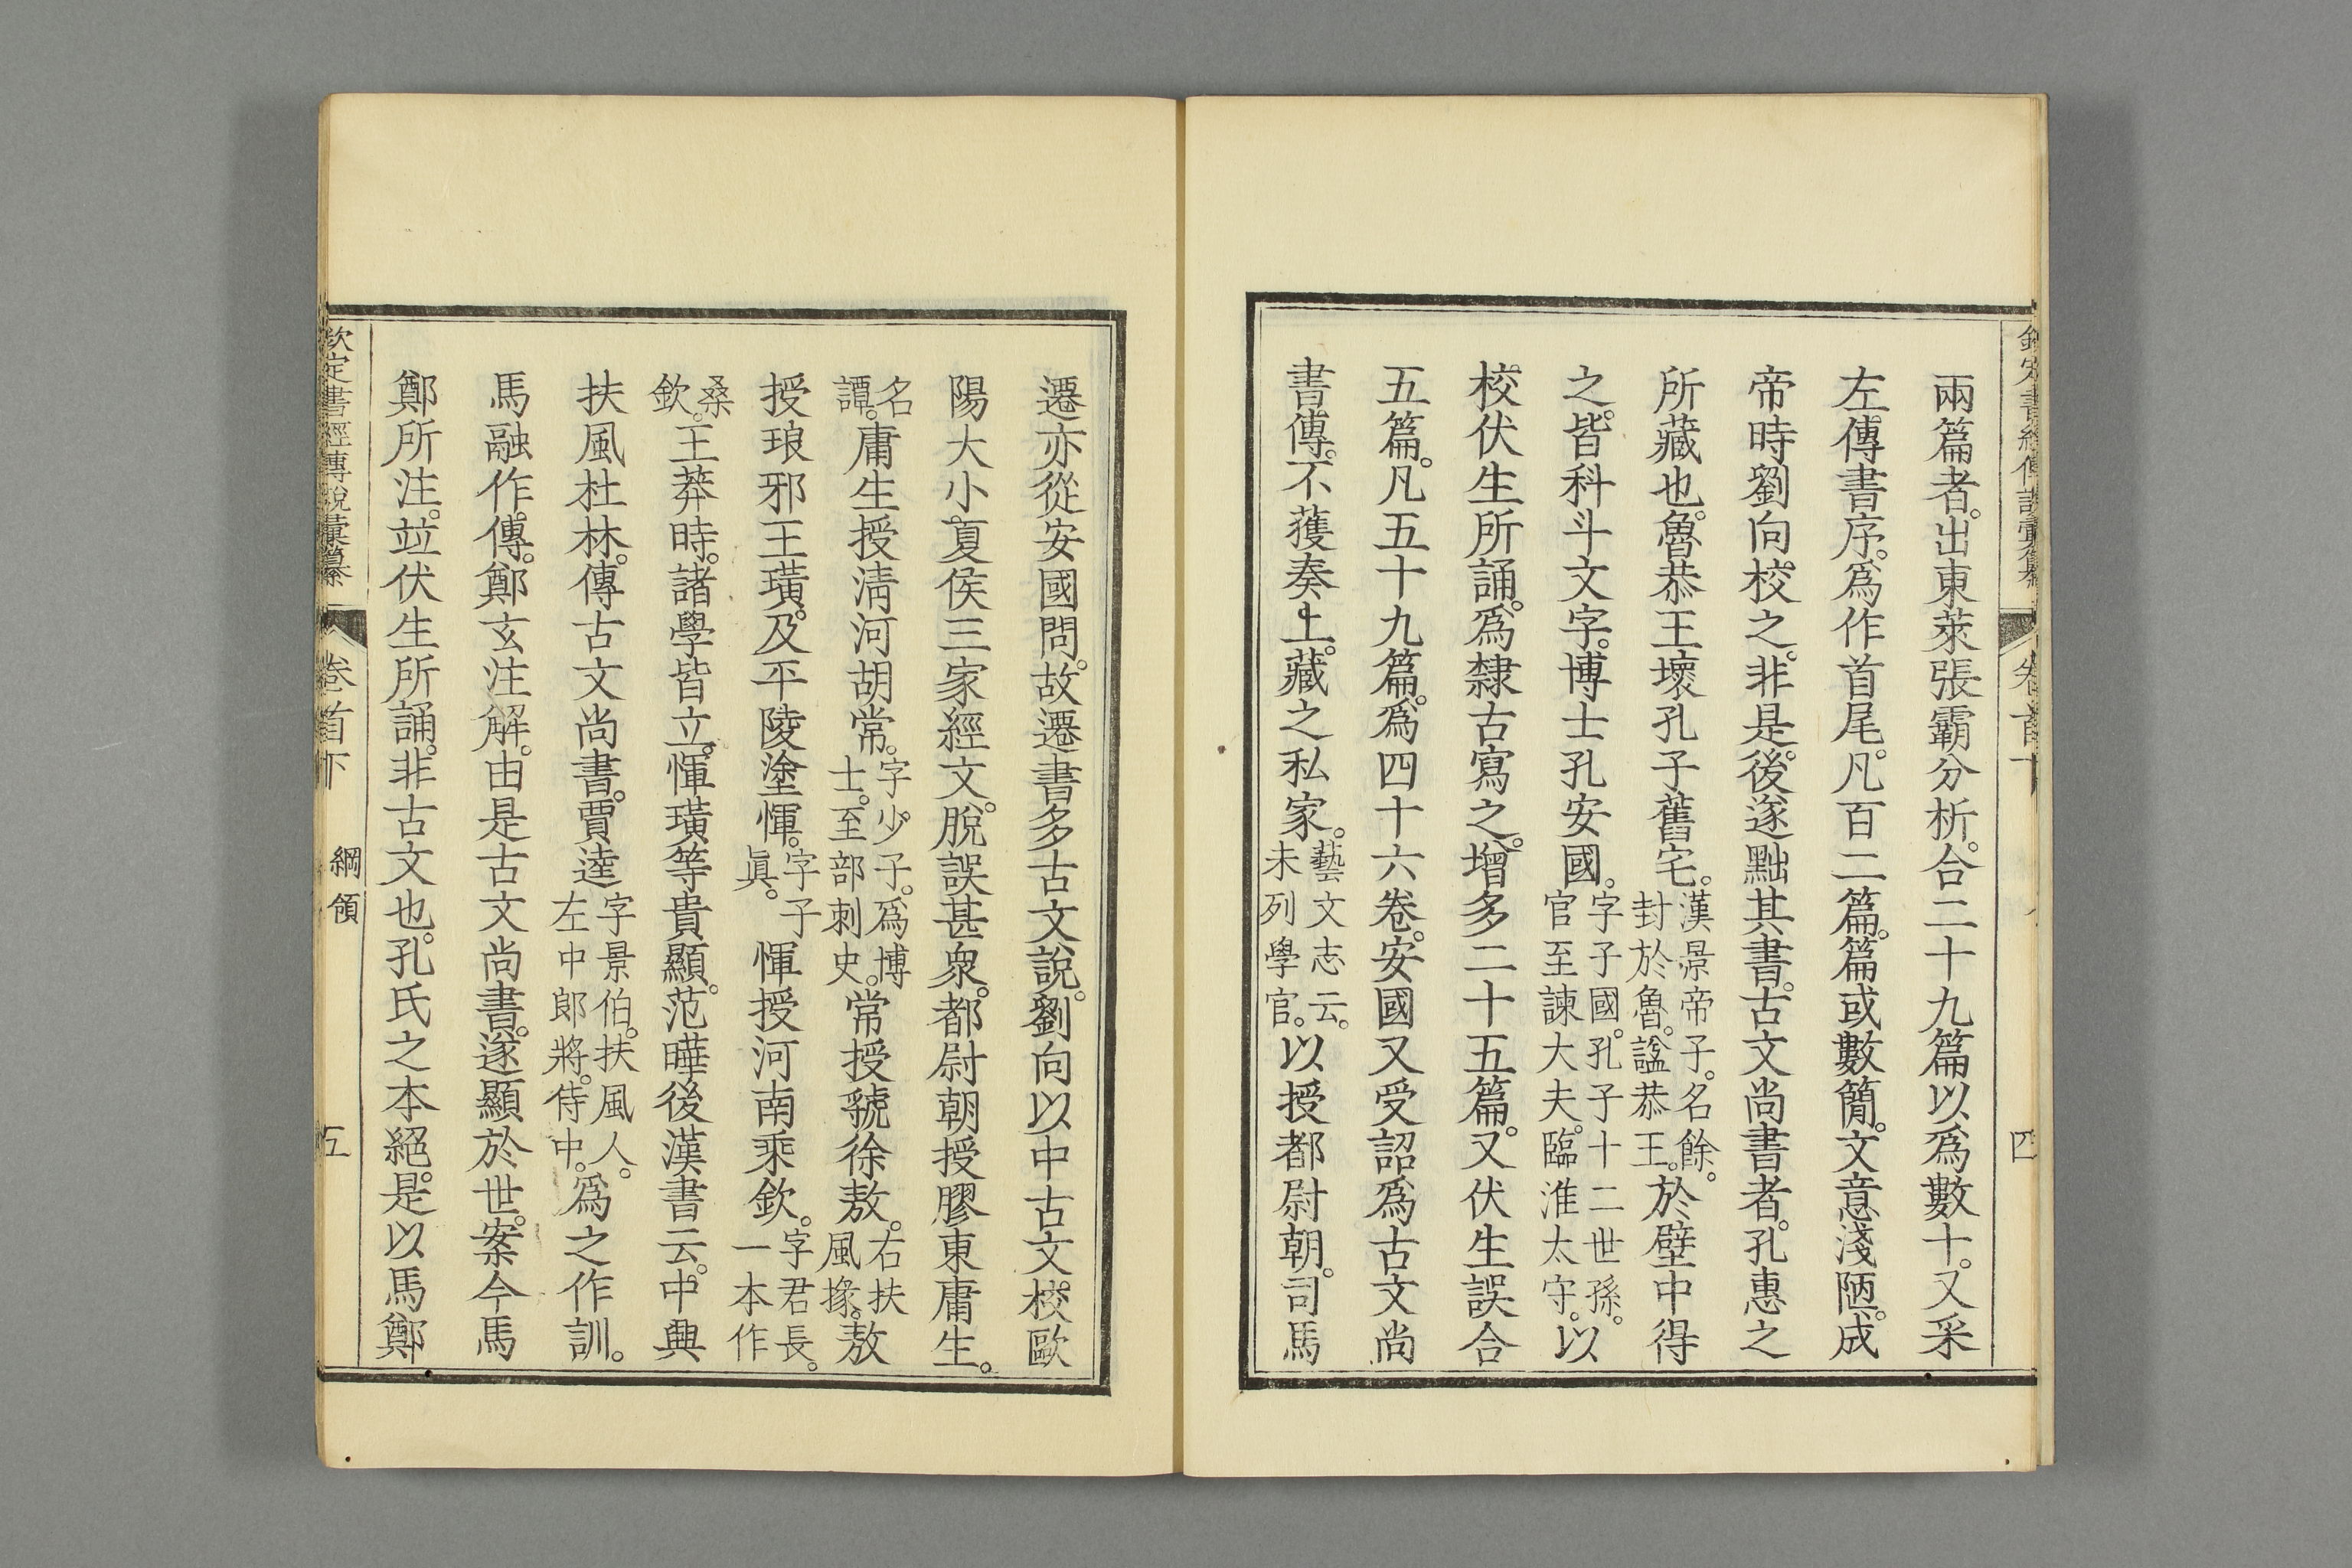 兩篇者。出東萊張霸分析。合二十九篇以爲數十。又采
左傳書序。爲作首尾。凡百二篇。篇或數簡。文意淺陋。成
帝時劉向校之。非是。後遂黜其書。古文尚書者。孔惠之
所藏也。魯恭王壞孔子舊宅。漢景帝子。名餘。封於魯。諡恭王。於壁中得
之。皆科斗文字。博士孔安國。字子國。孔子十二世孫。官至諫大夫。臨淮太守。以
校伏生所誦。爲隸古寫之。增多二十五篇。又伏生誤合
五篇。凡五十九篇。爲四十六卷。安國又受詔爲古文尚
書傳。不獲奏上。藏之私家。藝文志云。未列學官。以授都尉朝。司馬
四
遷亦從安國問。故遷書多古文說。劉向以中古文校歐
陽大小夏侯三家經文。脫誤甚衆。都尉朝授膠東庸生。
名譚。庸生授淸河胡常。字少子。爲博士。至部刺史。常授虢徐敖。右扶風掾。敖
授琅邪王璜。及平陵塗惲。字子眞。惲授河南乘欽。字君長。一本作
桑欽。王莽時。諸學皆立。惲璜等貴顯。范曄後漢書云。中興
扶風杜林。傳古文尚書。賈逵字景伯。扶風人。左中郎將。侍中。爲之作訓。
馬融作傳。鄭玄注解。由是古文尚書。遂顯於世。案今馬
鄭所注。竝伏生所誦。非古文也。孔氏之本絕。是以馬鄭
欽定書經傳說彙纂 卷首下 綱領 五